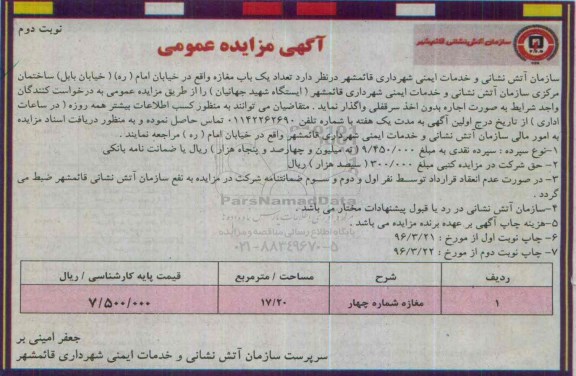 نوبت دوم
آگهی مزایده عمومی
سازمان آتش نشانی قائمشهر
سازمان آتش نشانی و خدمات ایمنی شهرداری قائمشهر درنظر دارد تعداد یک باب مغازه واقع در خیابان امام ( ره ) ( خیابان بابل) ساختمان
مرکزی سازمان آتش نشانی و خدمات ایمنی شهرداری قائمشهر ( ایستگاه شهید جهانیان ) را از طریق مزایده عمومی به درخواست کنندگان
واجد شرایط به صورت اجاره بدون اخذ سرقفلی واگذار نماید . متقاضیان می توانند به منظور کسب اطلاعات بیشتر همه روزه ( در ساعات
اداری ) از تاریخ درج اولین آگهی به مدت یک هفته با شماره تلفن ۰۱۱۴۲۲۶۲۶۹۰ تماس حاصل نموده و به منظور دریافت اسناد مزایده
به امور مالی سازمان آتش نشانی و خدمات ایمنی شهرداری قائمشهر واقع در خیابان امام ( ره ) مراجعه نمایند .
۱-نوع سپرده : سپرده نقدی به مبلغ ۹/۴۵۰/۰۰۰ ( نه میلیون و چهارصد و پنجاه هزار ) ریال یا ضمانت نامه بانکی
۲- حق شرکت در مزایده کتبی مبلغ ۳۰۰/۰۰۰ ( سیصد هزار ) ریال
۳- در صورت عدم انعقاد قرارداد توسط نفر اول و دوم و سوم ضمانتنامه شرکت در مزایده به نفع سازمان آتش نشانی قائمشهر ضبط می
گردد .
۴-سازمان آتش نشانی در رد یا قبول پیشنهادات مختار می باشد .
۵-هزینه چاپ آگهی بر عهده برنده مزایده می باشد .
۶- چاپ نوبت اول از مورخ : ۹۶/۳/۲۱
۷- چاپ نوبت دوم از مورخ : ۹۶/۳/۲۲
ParsNamadData
پایگاه اطلاع رسانی مناقصه و مزایده
۰۲۱-۸۸۳۴۹۶۷۰-۵
ردیف شرح مساحت / مترمربع قیمت پایه کارشناسی / ریال
۱ مغازه شماره چهار ۱۷/۲۰ ۷/۵۰۰/۰۰۰
جعفر امینی بر
سرپرست سازمان آتش نشانی و خدمات ایمنی شهرداری قائمشهر